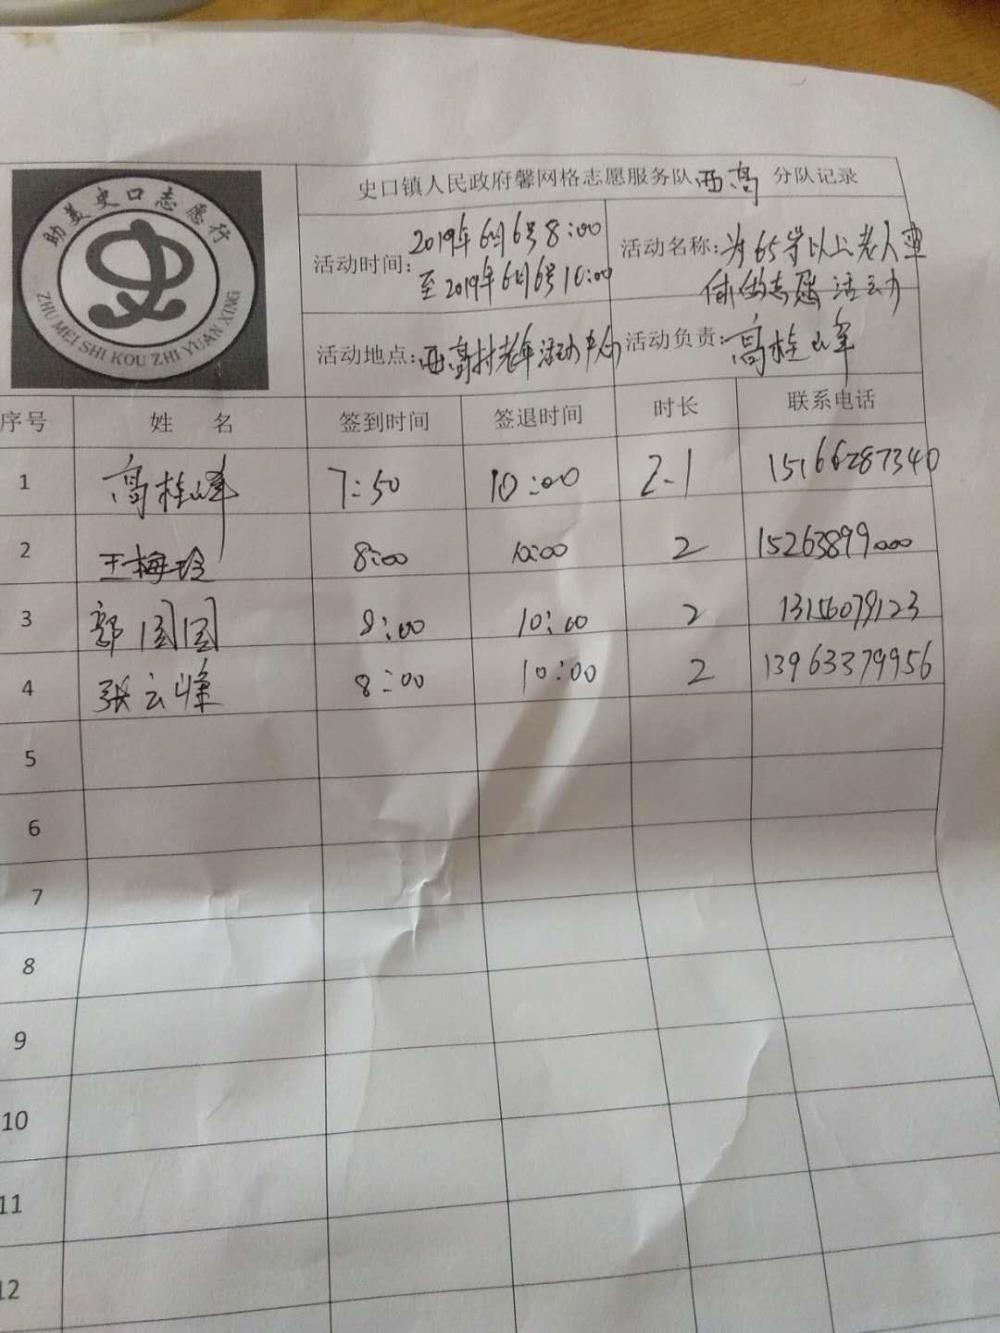 助美史口志愿行
ZHU MEI SHI KOU ZHI YUAN XING
史口镇人民政府馨网格志愿服务队西高 分队记录
活动时间: 2019年6月6号8:00
至2019年6月6号10:00
活动名称: 为65岁以上老人
体做志愿活动
活动地点: 西高村老年活动中心
活动负责: 高桂峰
序号 姓 名 签到时间 签退时间 时长 联系电话
1 高桂峰 7:50 10:00 2.1 15166287340
2 王梅玲 8:00 10:00 2 15263899000
3 郭国国 8:00 10:00 2 13156079123
4 张云峰 8:00 10:00 2 13963379956
5
6
7
8
9
10
11
12